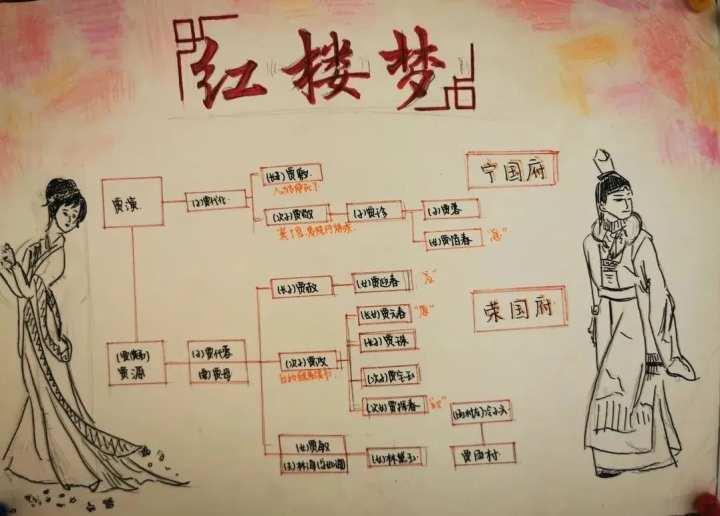 红楼梦
宁国府
(长子)贾敷
八九岁死了
贾演
(子)贾代化
(次子)贾敬
(子)贾珍
(子)贾蓉
(女)贾惜春
"息"
荣国府
(长子)贾赦
(女)贾迎春
(长女)贾元春
"原"
(长子)贾珠
贾源
(子)贾代善
贾母
(次子)贾政
自幼酷喜读书
(次子)贾宝玉
(次女)贾探春
"叹"
(雨村友)冷子兴
(女)贾敏
(夫)林海(字如海)
(女)林黛玉
贾雨村